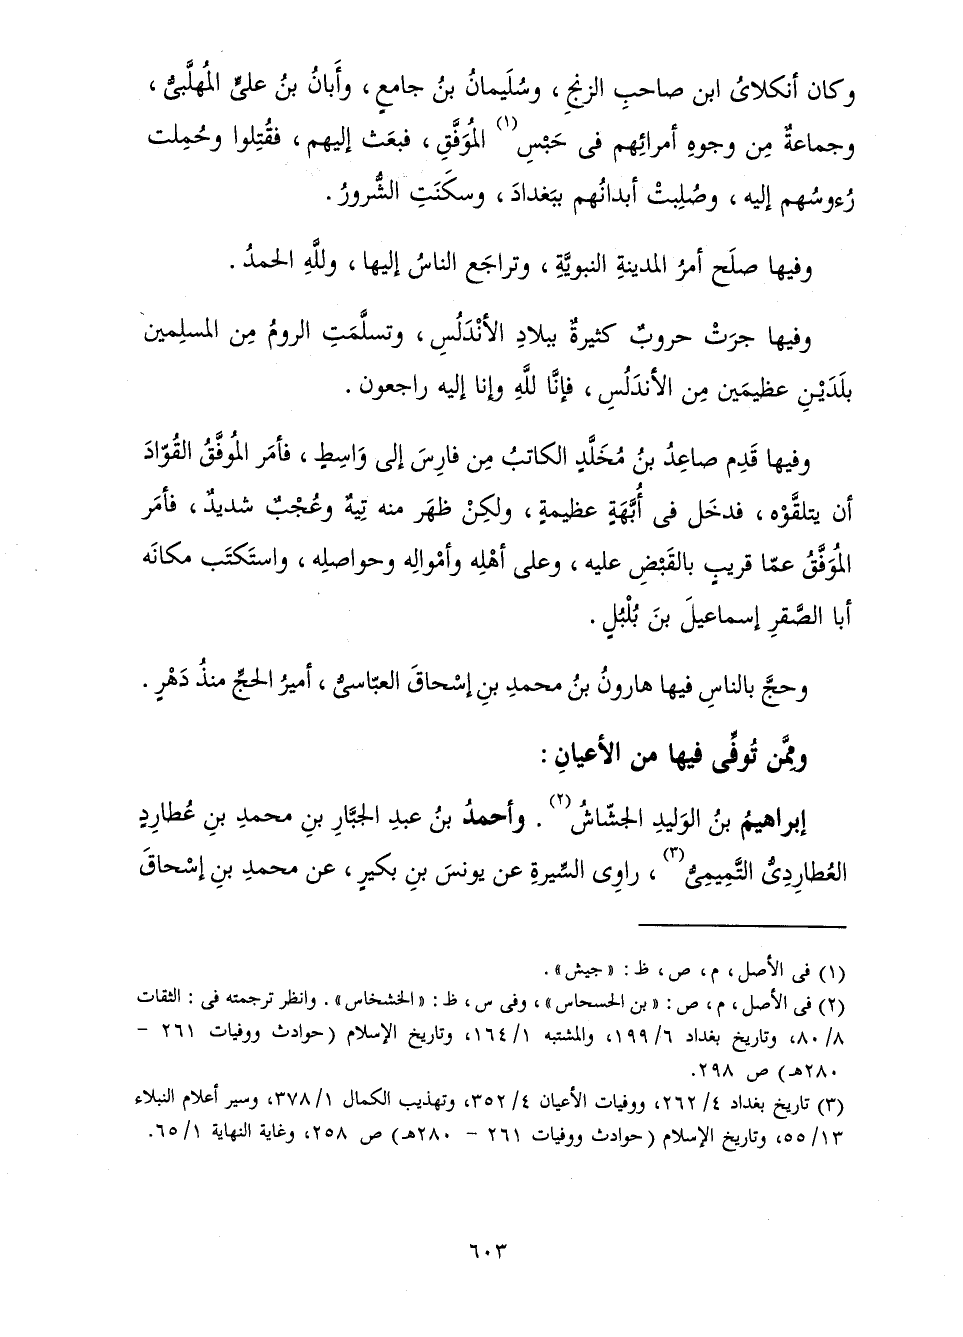 وكان أنكلاىُ ابن صاحبِ الزنجِ ، وسُلَيمانُ بنُ جامعٍ ، وأَبانُ بنُ علىٍّ المُهلَّبىُّ ،
وجماعةٌ مِن وجوهِ أمرائِهم فى حَبْسِ(١) المُوَفَّقِ ، فبعَث إليهم ، فقُتِلوا وحُمِلت
رُءوسُهم إليه ، وصُلِبتْ أبدانُهم ببَغدادَ ، وسكَنَتِ الشُّرورُ .
وفيها صلَح أمرُ المدينةِ النبويَّةِ ، وتراجَع الناسُ إليها ، وللَّهِ الحمدُ .
وفيها جرَتْ حروبٌ كثيرةٌ ببلادِ الأنْدَلُسِ ، وتسلَّمَتِ الرومُ مِن المسلِمين
بلَدَيْنِ عظيمَين مِن الأندَلُسِ ، فإنَّا للَّهِ وإنا إليه راجعون .
وفيها قَدِم صاعِدُ بنُ مُخَلَّدٍ الكاتبُ مِن فارِسَ إلى وَاسِطٍ ، فأمَر المُوفَّقُ القُوّادَ
أن يتلقَّوْه ، فدخَل فى أُبَّهَةٍ عظيمةٍ ، ولكِنْ ظهَر منه تِيهٌ وعُجْبٌ شديدٌ ، فأمَر
المُوَفَّقُ عمّا قريبٍ بالقَبْضِ عليه ، وعلى أهْلِه وأمْوالِه وحواصلِه ، واستَكتَب مكانَه
أبا الصَّقرِ إسماعيلَ بنَ بُلْبُلٍ .
وحجَّ بالناسِ فيها هارونُ بنُ محمدِ بنِ إسْحاقَ العبّاسىُّ ، أميرُ الحجِّ منذُ دَهْرٍ .
وممَّن تُوفِّى فيها من الأعيانِ :
إبراهيمُ بنُ الوَليدِ الجشّاشُ(٢) . وأحمدُ بنُ عبدِ الجبَّارِ بنِ محمدِ بنِ عُطارِدٍ
العُطارِدِىُّ التَّمِيمِىُّ(٣) ، راوِى السِّيرةِ عن يونسَ بنِ بكيرٍ ، عن محمدِ بنِ إسْحاقَ
(١) فى الأصل ، م ، ص ، ظ : «جيش» .
(٢) فى الأصل ، م ، ص : «بن الحسحاس» ، وفى س ، ظ : «الخشخاس» . وانظر ترجمته فى : الثقات
٨/ ٨٠، وتاريخ بغداد ٦/ ١٩٩، والمشتبه ١/ ١٦٤، وتاريخ الإسلام (حوادث ووفيات ٢٦١ -
٢٨٠هـ) ص ٢٩٨.
(٣) تاريخ بغداد ٤/ ٢٦٢، ووفيات الأعيان ٤/ ٣٥٢، وتهذيب الكمال ١/ ٣٧٨، وسير أعلام النبلاء
١٣/ ٥٥، وتاريخ الإسلام (حوادث ووفيات ٢٦١ - ٢٨٠هـ) ص ٢٥٨، وغاية النهاية ١/ ٦٥.
٦٠٣